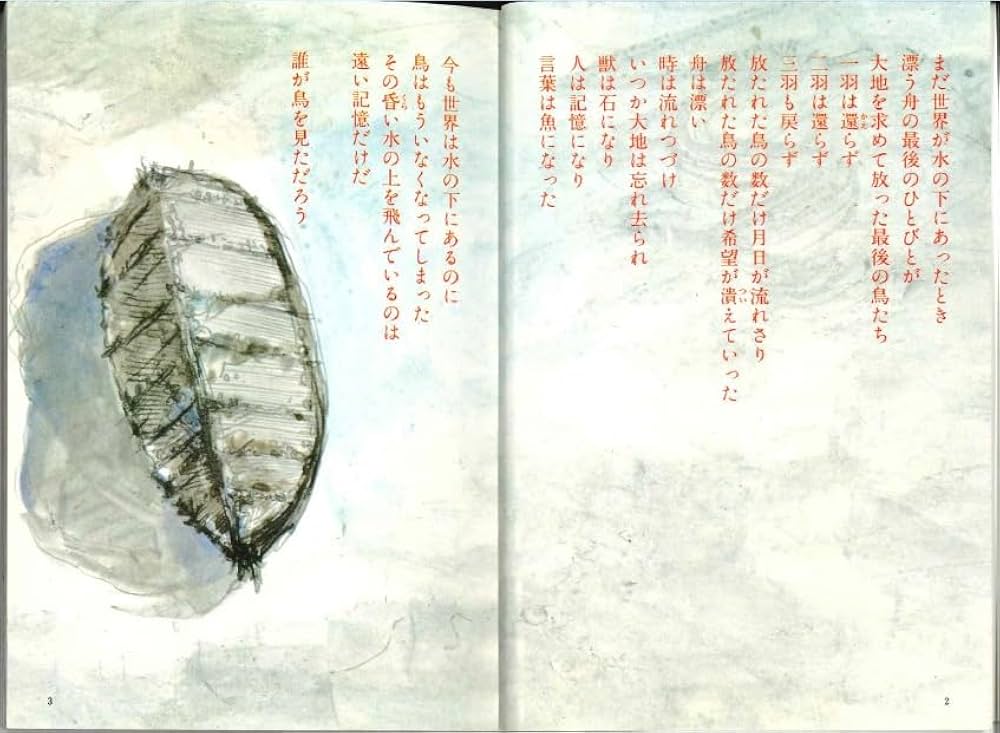 まだ世界が水の下にあったとき
漂う舟の最後のひとびとが
大地を求めて放った最後の鳥たち
一羽は還らず
二羽は還らず
三羽も戻らず
放たれた鳥の数だけ月日が流れさり
放たれた鳥の数だけ希望が潰えていった
舟は漂い
時は流れつづけ
いつか大地は忘れ去られ
獣は石になり
人は記憶になり
言葉は魚になった
2
今も世界は水の下にあるのに
鳥はもういなくなってしまった
その昏い水の上を飛んでいるのは
遠い記憶だけだ
誰が鳥を見ただろう
3